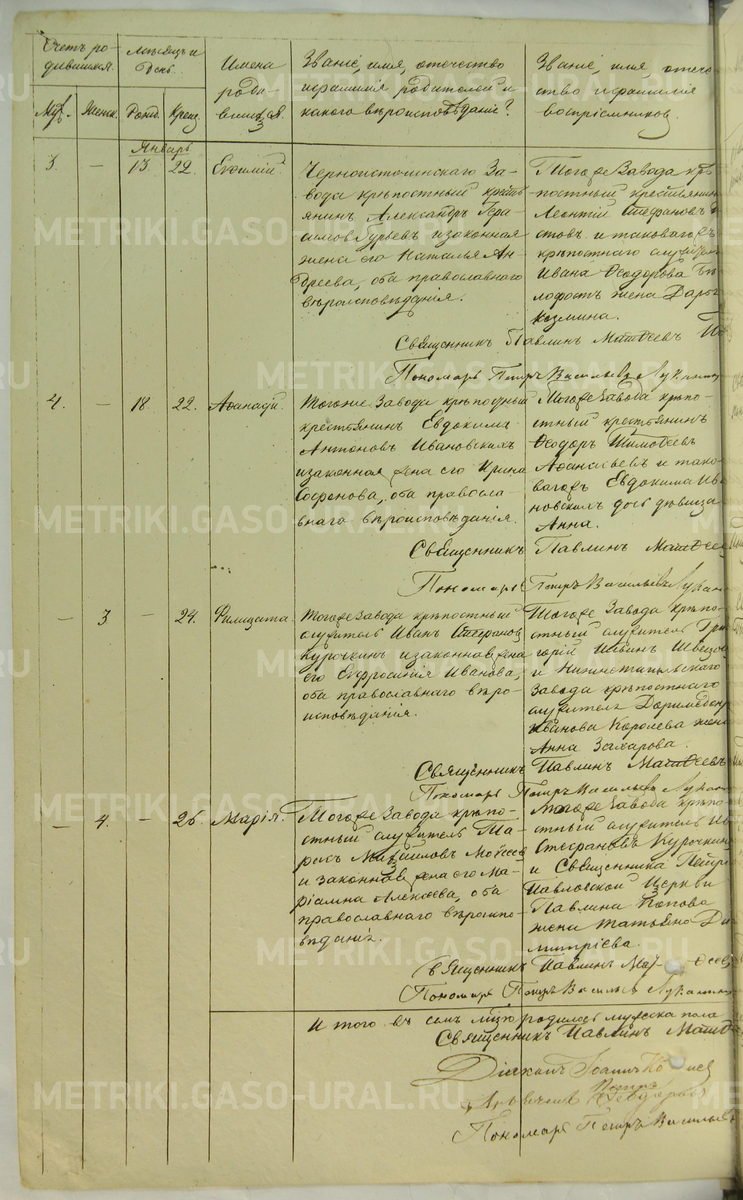 Счетъ ро-
дившихся.
Мѣсяцъ и
День.
Имена
роди-
вшихся.
Званіе, имя, отечество
и фамилія родителей и
какого вѣроисповѣданія?
Званіе, имя, отече
ство и фамилія
воспріемниковъ
Муж. Женск. Рожд. Крещ.
Январь
3. — 13. 22. Евфимій.
Черноисточинскаго За-
вода крѣпостный кресть
янинъ Александръ Гера-
симовъ Гурьевъ и законная
жена его Наталья Ан-
дреева, оба православнаго
вѣроисповѣданія.
Тогоже Завода крѣ
постный крестьянинъ
Леонтій Стефановъ
стовъ и таковагожъ
крѣпостнаго служителя
Ивана Ѳеодорова Бѣ
жена Дарья
Козмина.
Священникъ Павлинъ Матѳеевъ По
Пономарь Петръ Васильевъ Лукани
4. — 18. 22. Аѳанасій.
Тогоже Завода крѣпостный
крестьянинъ Евдокимъ
Антоновъ Ивановскихъ
и законная жена его Ирина
Софронова, оба правосла-
внаго вѣроисповѣданія.
Тогоже Завода крѣпо-
стный крестьянинъ
Ѳеодоръ Тимоѳеевъ
Аѳанасьевъ и тако-
вагожъ Евдокима Ива
новскихъ дочь дѣвица
Анна.
Священникъ Павлинъ Матѳеев
Пономарь Петръ Васильевъ Лукан
— 3 — 24. Филицата.
Тогоже Завода крѣпостный
служитель Иванъ Стефановъ
Курочкинъ и законная жена
его Евфросинія Иванова,
оба православнаго вѣро-
исповѣданія.
Тогоже Завода крѣпо-
стный служитель Гри
горій Швецов
и Нижнетагильскаго
Завода крѣпостнаго
служителя
Иванова Королева жена
Анна Захарова.
Священникъ Павлинъ Матѳеевъ
Пономарь Петръ Васильевъ Лукан
— 4. — 26. Марія.
Тогоже Завода крѣпо-
стный служитель Та-
расъ Михайловъ Моисеев
и законная жена его Ма-
ріамна Алексѣева, оба
православнаго вѣроиспо-
вѣданія.
Тогоже Завода крѣпо
стный служитель Ив
Стефановъ Курочкин
и Священника Петро
Павловской Церкви
Павлина Попова
жена Татьяна Ди
митріева.
Священникъ Павлинъ Мат ѳеев
Пономарь Петръ Васильевъ Луканин
И того въ семъ мѣсяцѣ родилось мужеска пола
Священникъ Павлинъ Матѳ
Діаконъ Іоаннъ
Пономарь Петръ Васильевъ
METRIKI.GASO-URAL.RU
METRIKI.GASO-URAL.RU
METRIKI.GASO-URAL.RU
METRIKI.GASO-URAL.RU
METRIKI.GASO-URAL.RU
METRIKI.GASO-URAL.RU
METRIKI.GASO-URAL.RU
METRIKI.GASO-URAL.RU